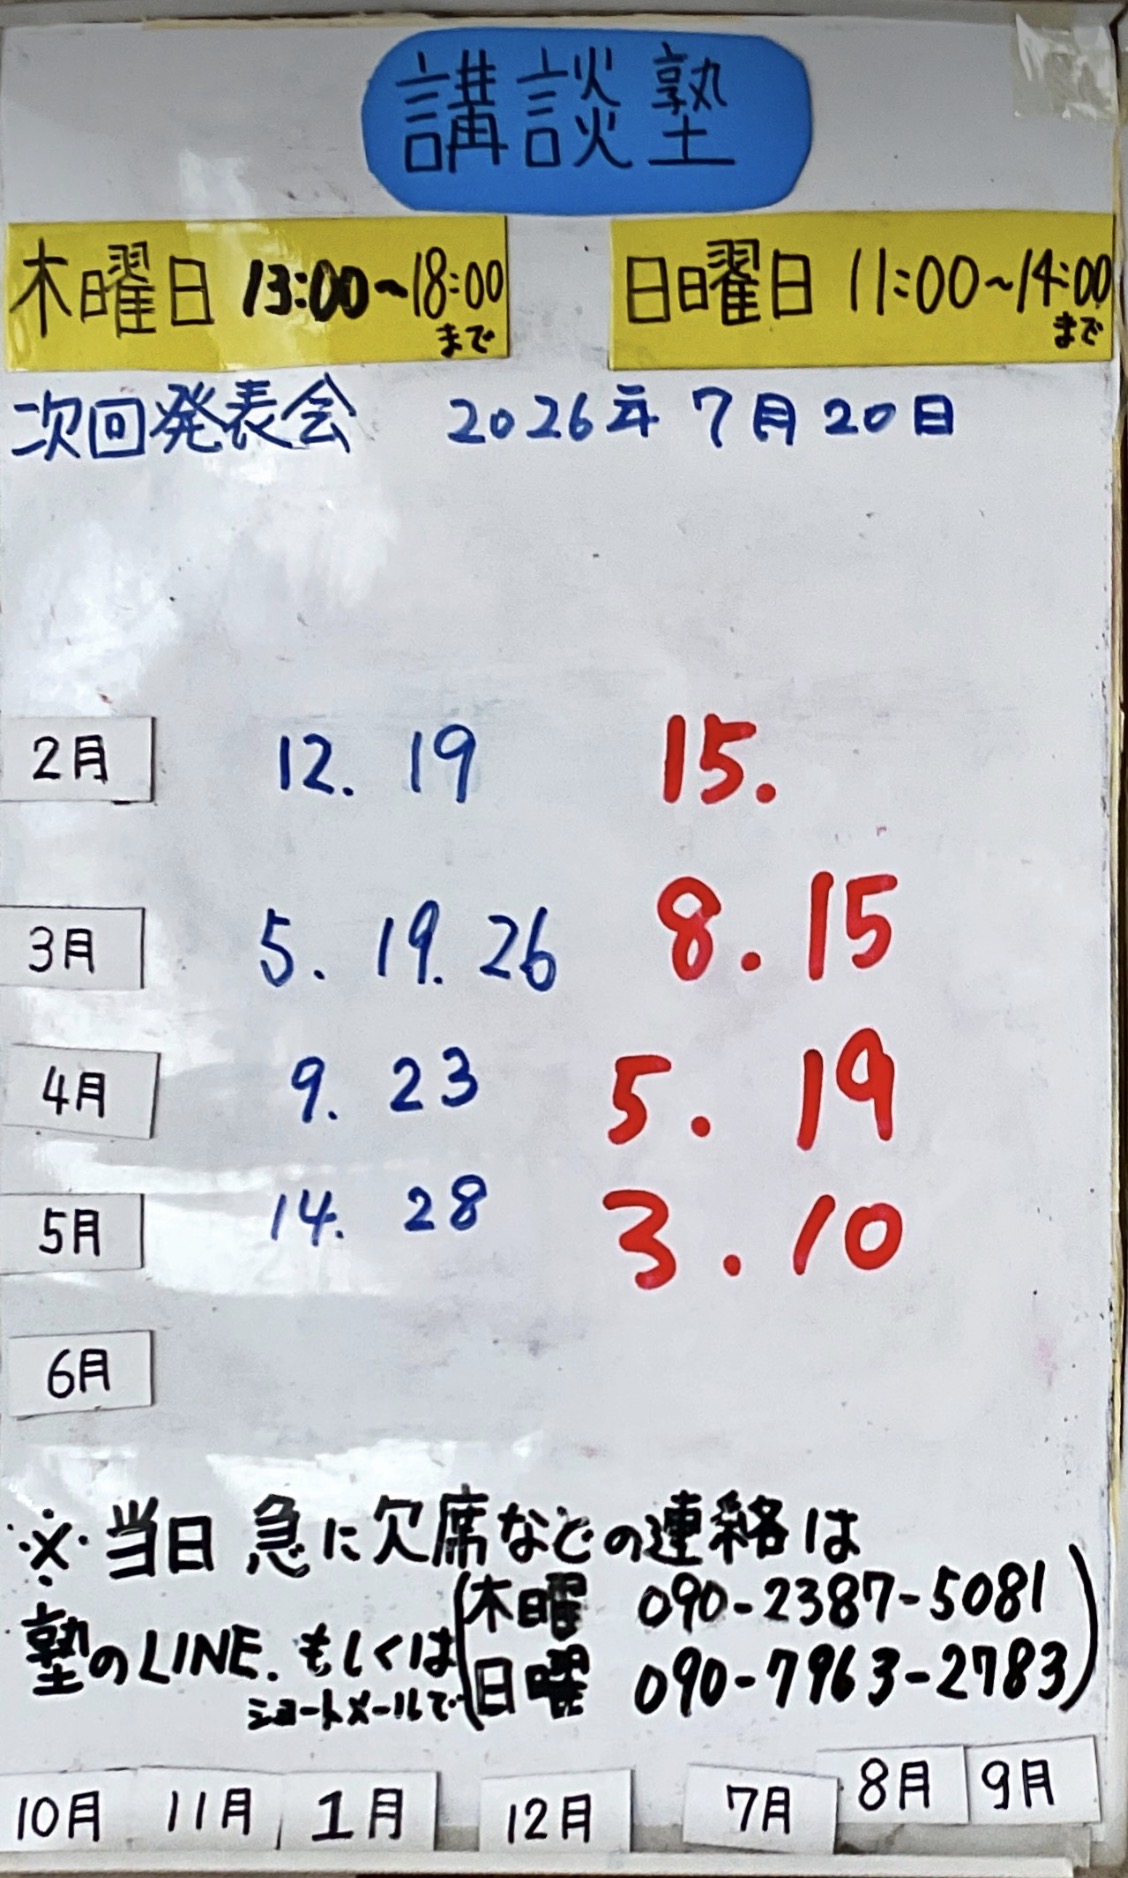 講談塾
木曜日 13:00~18:00まで
日曜日 11:00~14:00まで
次回発表会 2026年7月20日
2月 12. 19 15.
3月 5. 19. 26 8. 15
4月 9. 23 5. 19
5月 14. 28 3. 10
6月
※当日 急に欠席などの連絡は
塾のLINE.もしくは
ショートメールで
(木曜 090-2387-5081
日曜 090-7963-2783)
10月 11月 1月 12月 7月 8月 9月